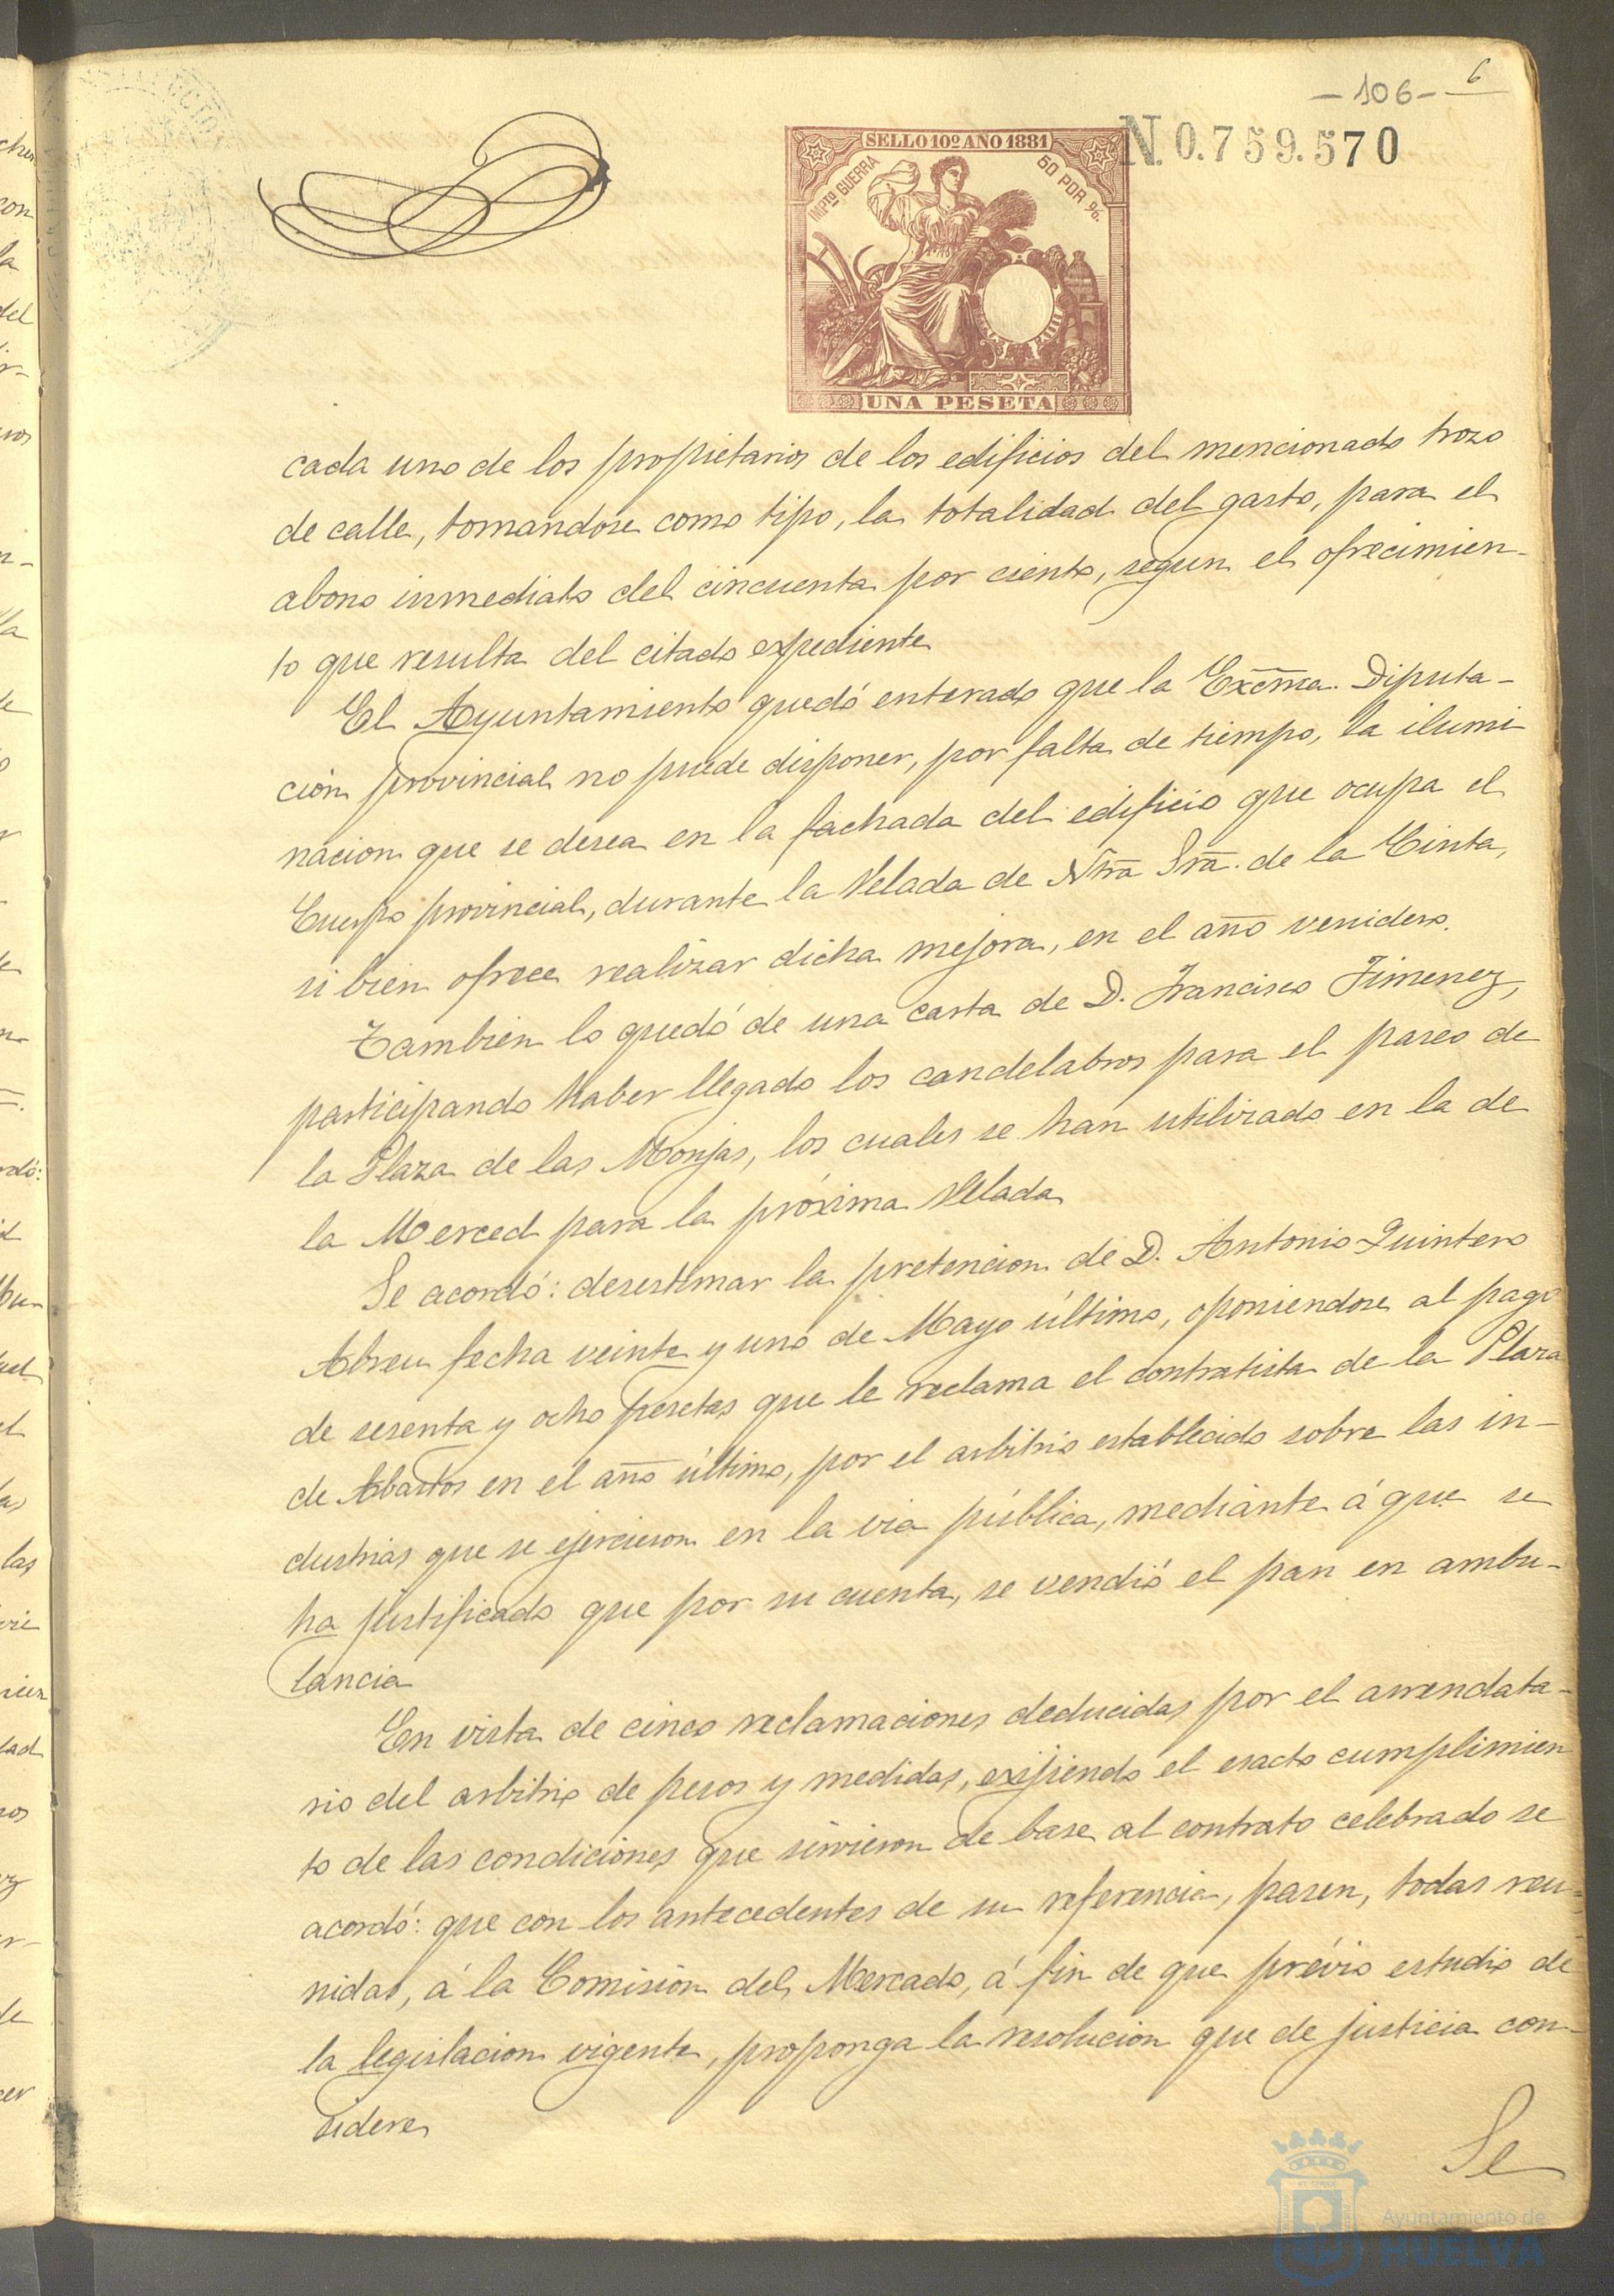 - 106 - 6
N. 0.759.570
SELLO 10º AÑO 1881
IMPTO GUERRA
50 POR %
UNA PESETA
cada uno de los propietarios de los edificios del mencionado trozo
de calle, tomandose como tipo, la totalidad del gasto, para el
abono inmediato del cincuenta por ciento, segun el ofrecimien-
to que resulta del citado expediente
El Ayuntamiento quedó enterado que la Excma. Diputa-
ción provincial no puede disponer, por falta de tiempo, la ilumi
nacion que se desea en la fachada del edificio que ocupa el
Cuerpo provincial, durante la Velada de Ntra Sra. de la Cinta,
si bien ofrece realizar dicha mejora, en el año venidero.
Tambien lo quedó de una carta de D. Francisco Jimenez,
participando haber llegado los candelabros para el paseo de
la Plaza de las Monjas, los cuales se han utilizado en la de
la Merced para la próxima Velada
Se acordó: desestimar la pretencion de D. Antonio Quintero
Abreu fecha veinte y uno de Mayo último, oponiendose al pago
de sesenta y ocho pesetas que le reclama el contratista de la Plaza
de Abastos en el año último, por el arbitrio establecido sobre las in-
dustrias que se ejercieron en la via pública, mediante á que se
ha justificado que por su cuenta, se vendió el pan en ambu-
lancia
En vista de cinco reclamaciones deducidas por el arrendata-
rio del arbitrio de pesos y medidas, exijiendo el esacto cumplimien
to de las condiciones que sirvieron de base al contrato celebrado se
acordó: que con los antecedentes de su referencia, pasen, todas reu-
nidas, á la Comisión del Mercado, á fin de que prévio estudio de
la legislacion vigente, proponga la resolucion que de justicia con-
sidere
Se
Ayuntamiento de
HUELVA